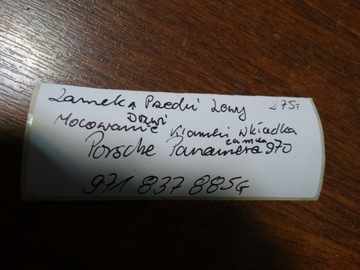 Zamek Przedni Lewy 275,
Drzwi
Mocowanie Klamki wkładka
zamka
Porsche Panamera 970
971 837 885G